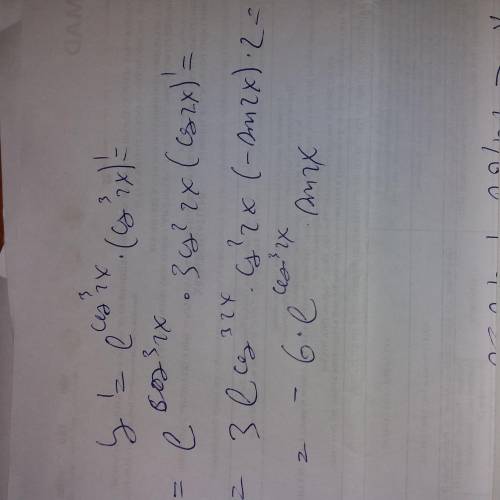 y' = e^{cos^3 2x} · (cos^3 2x)' =
= e^{cos^3 2x} · 3cos^2 2x (cos 2x)' =
= 3 e^{cos^3 2x} · cos^2 2x (-sin 2x) · 2 =
= - 6 · e^{cos^3 2x} · sin 2x